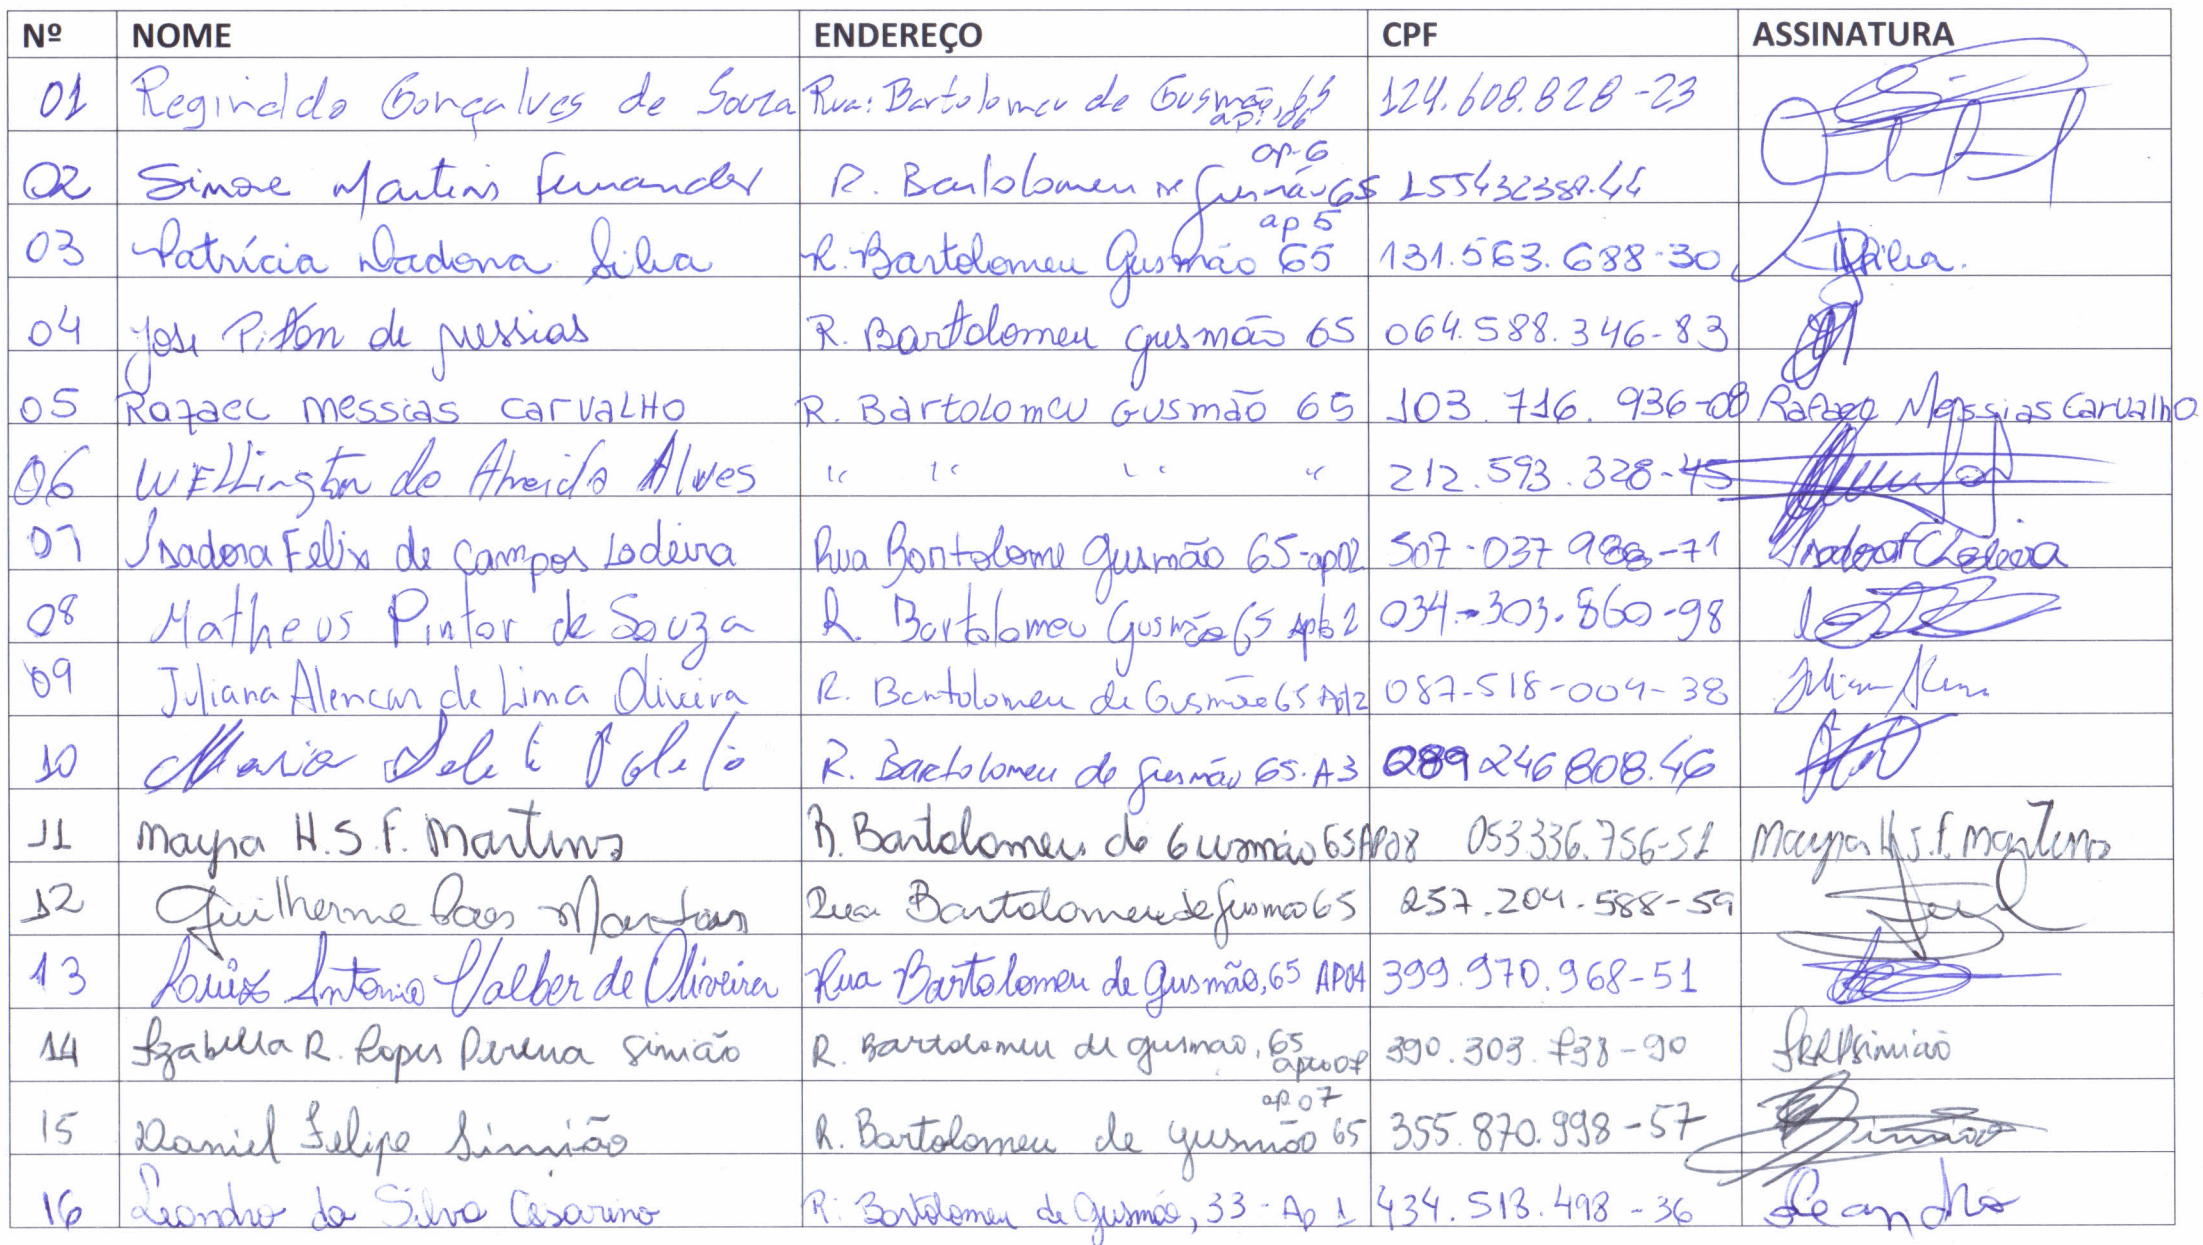 Nº NOME ENDEREÇO CPF ASSINATURA
01 Reginaldo Gonçalves de Souza Rua: Bartolomeu de Gusmão, 65 ap: 06 124.608.828-23
02 Simone Martins Fernandes R. Bartolomeu de Gusmão 65 ap-6 155432358.44
03 Patrícia Dadona Silva R. Bartolomeu Gusmão 65 ap 5 131.563.688-30 Silva.
04 Jose Piton de messias R. Bartolomeu Gusmão 65 064.588.346-83
05 Rafael messias carvaLHo R. Bartolomeu Gusmão 65 103.716.936-08 Rafael Messias Carvalho
06 WELLington de Almeida Alves " " " " 212.593.328-45
07 Isadora Felix de Campos Lodeira Rua Bartolome Gusmão 65-ap02 507-037 988-71
08 Matheus Pintor de Souza R. Bartolomeu Gusmão 65 Apto 2 034-303.860-98
09 Juliana Alencar de Lima Oliveira R. Bartolomeu de Gusmão 65 Ap12 087-518-004-38
10 Maria R. Bartolomeu de Gusmão 65. A3 089 246 808.46
11 Mayra H.S.F. Martins R. Bartolomeu de Gusmão 65 AP08 053.336.756-51 Mayra H.S.F. Martins
12 Guilherme Martins Rua Bartolomeu de Gusmão 65 257.204.588-59
13 Luiz Antonio Valber de Oliveira Rua Bartolomeu de Gusmão, 65 AP04 399.970.968-51
14 Izabella R. Lopes Pereira Simião R. Bartolomeu de Gusmão, 65 apto 07 390.303.738-90 IRLPSimião
15 Daniel Felipe Simião R. Bartolomeu de Gusmão 65 ap. 07 355.870.998-57 Simião
16 Leandro da Silva Cesarino R. Bartolomeu de Gusmão, 33 - Ap 1 434.518.498-36 Leandro